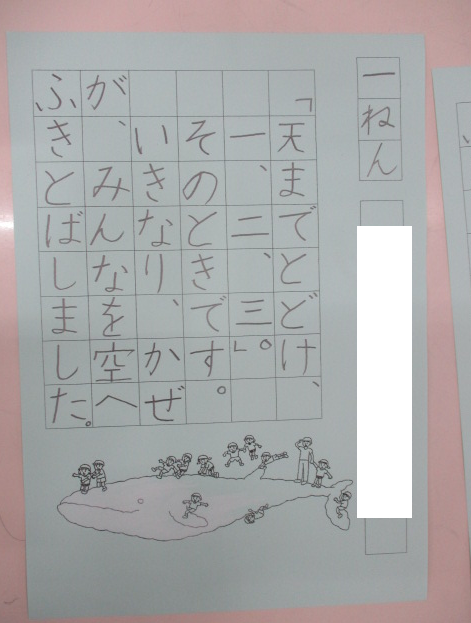 一ねん
「天までとどけ、
一、二、三。」
そのときです。
いきなり、かぜ
が、みんなを空へ
ふきとばしました。